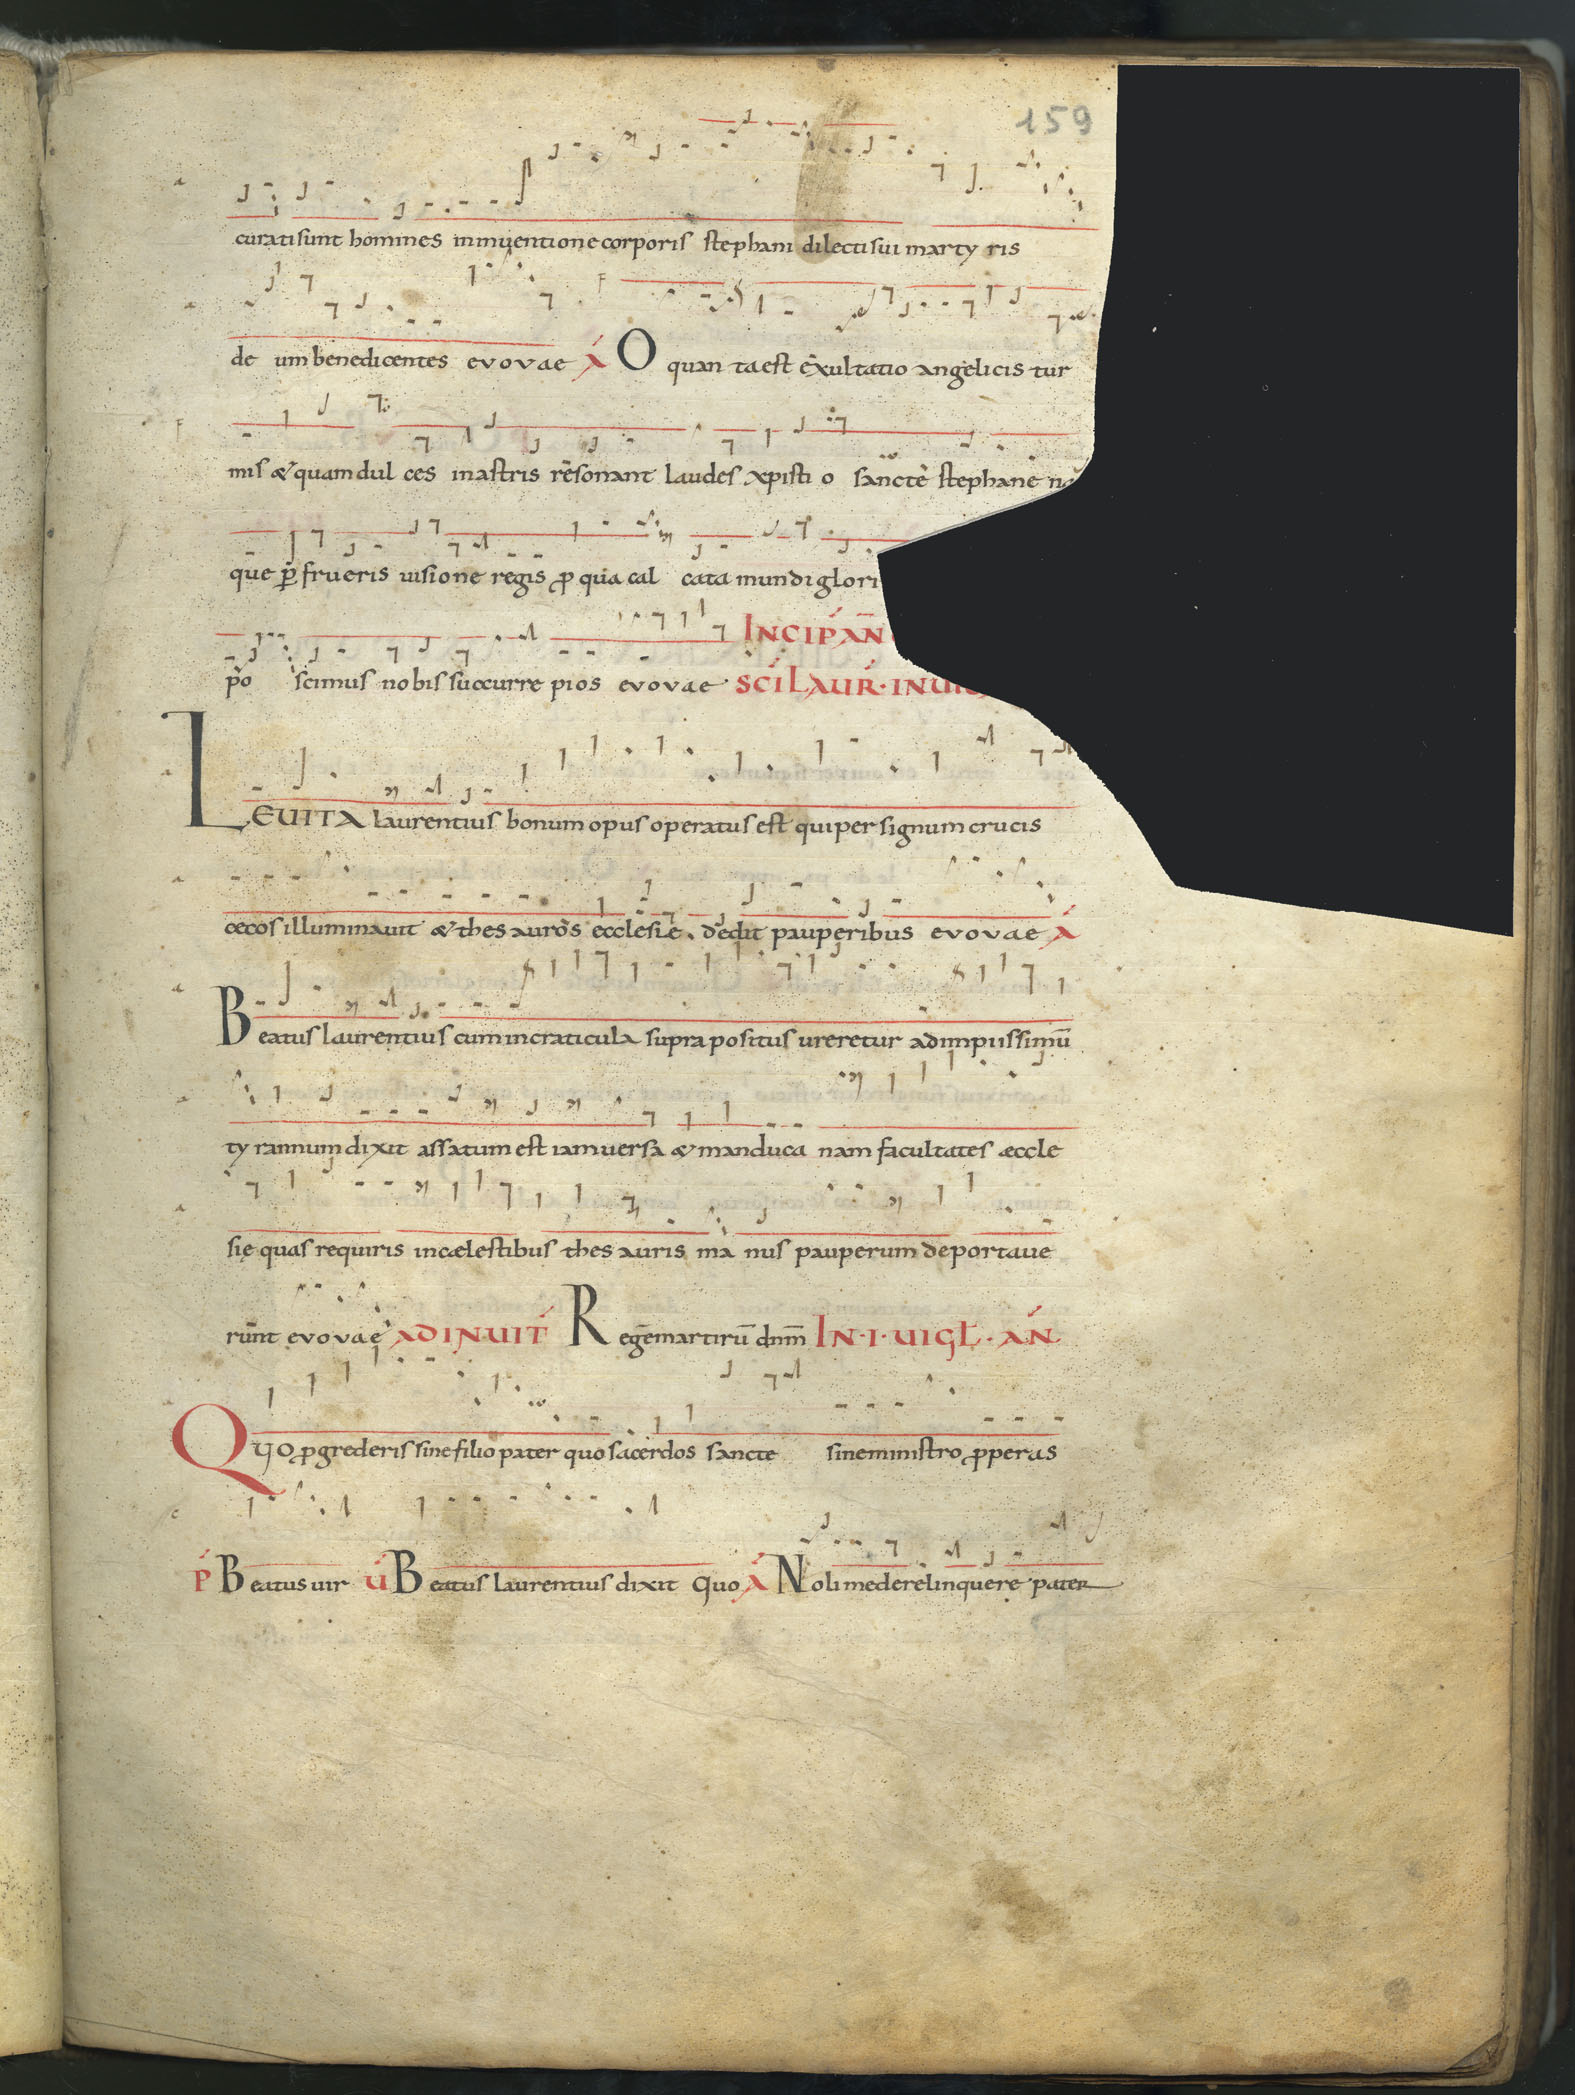 159
curati sunt homines in inventione corporis stephani dilecti sui marty ris
de um benedicentes evovae A O quan ta est exultatio angelicis tur
mis & quam dul ces in astris resonant laudes xpisti o sancte stephane
que p̄ frueris visione regis ꝓ qua cal cata mundi glori
po scimus nobis succurre pios evovae INCIPAN
SCI LAUR· IN
LEVITA laurentius bonum opus operatus est qui per signum crucis
cecos illuminavit & thes auros ecclesie. dedit pauperibus evovae A
Beatus laurentius cum in craticula supra positus ureretur ad impiissimū
ty rannum dixit assatum est iam versa & manduca nam facultates eccle
sie quas requiris in celestibus thes auris ma nus pauperum deportave
runt evovae AD INVIT R egē martirū dn̄m IN·I·VIGL·AN
QUO ꝓgrederis sine filio pater quo sacerdos sancte sine ministro ꝓperas
P Beatus vir V Beatus laurentius dixit Quo A Noli me derelinquere pater